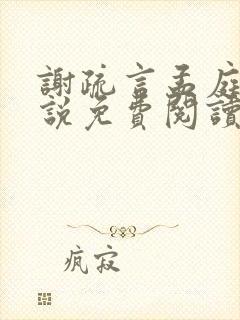 謝疏言孟庭
說免費閱讀
瘋寂